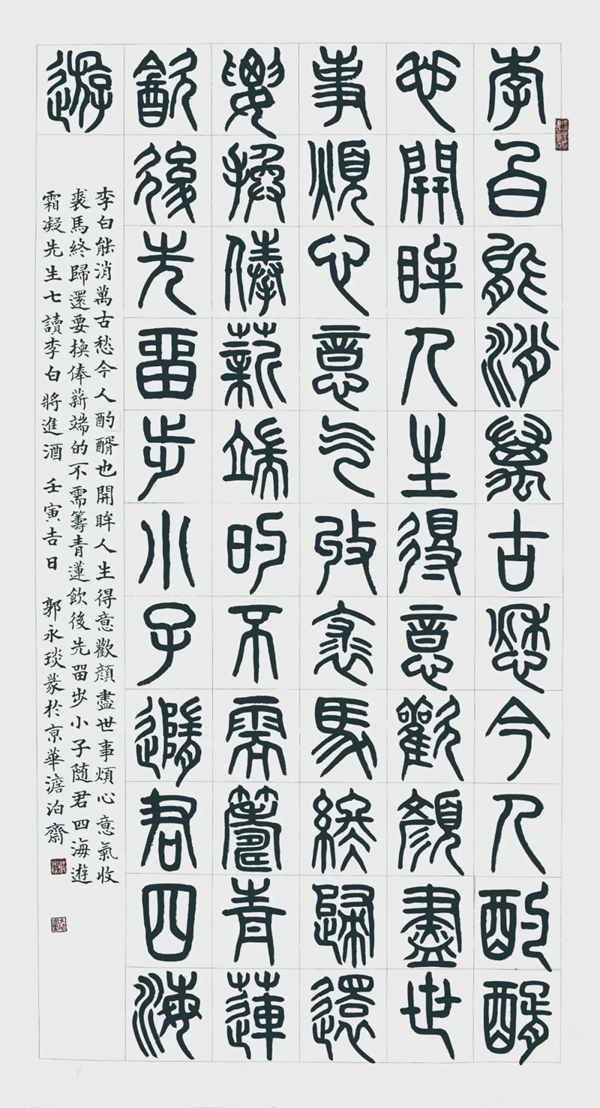 李白能消萬古愁今人酌醑
也開眸人生得意歡顏盡世
事煩心意气收裘馬終歸還
要換俸薪端的不需籌青蓮
飲後先畱步小子隨君四海
遊
李白能消萬古愁今人酌醑也開眸人生得意歡顏盡世事煩心意氣收
裘馬終歸還要換俸薪端的不需籌青蓮飲後先畱步小子随君四海遊
霜凝先生七讀李白將進酒 壬寅吉日 郭永琰篆於京華澹泊齋